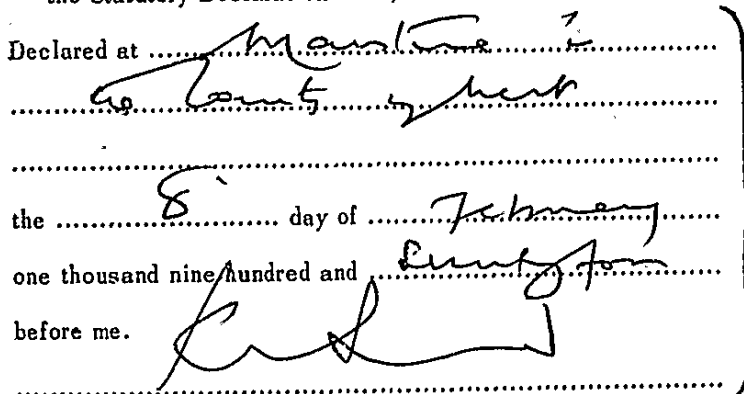 the Statutory Declarat
Declared at ..........................................
the County of Kent
the 8 day of February
one thousand nine hundred and Seventy four
before me.